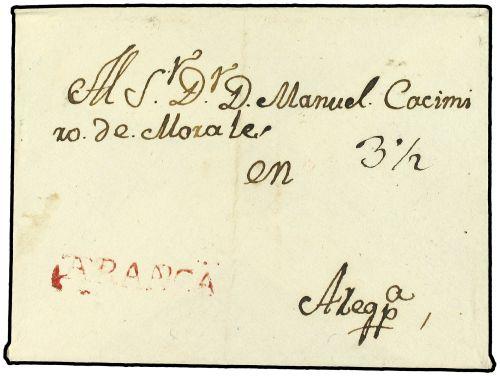 Al Sr. Dr. D. Manuel. Cacimi
ro. de. Morales
en 3 1/2
Areqpa,